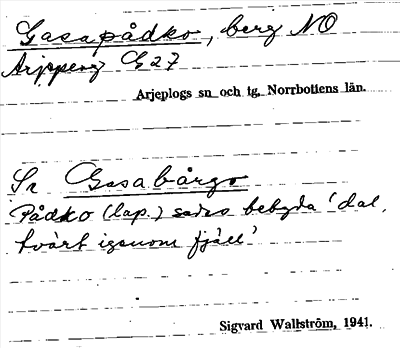 Gasapådko, berg NO
Arjepperg E27
Arjeplogs sn och tg, Norrbottens län.
Se Gasabårgo
Pådko (lap.) sades betyda 'dal,
tvärt igenom fjäll'
Sigvard Wallström, 1941.